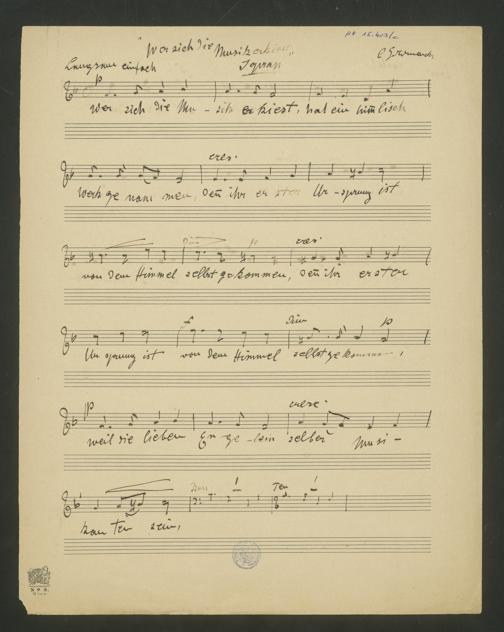 "Wer sich die Musik erkiest"
Sopran
Langsam einfach
p
wer sich die Mu - sik erkiest, hat ein himlisch
cres.
Werk ge nom men, deñ ihr er sten Ur - sprung ist
Dim p cres.
von dem Himmel selbst gekommen, deñ ihr ersten
f Dim p
Ur sprung ist von dem Himmel selbst gekommen,
p cresc.
weil die lieben En - ge - lein selber Musi -
Ten
kan Ten sein,
No 3.